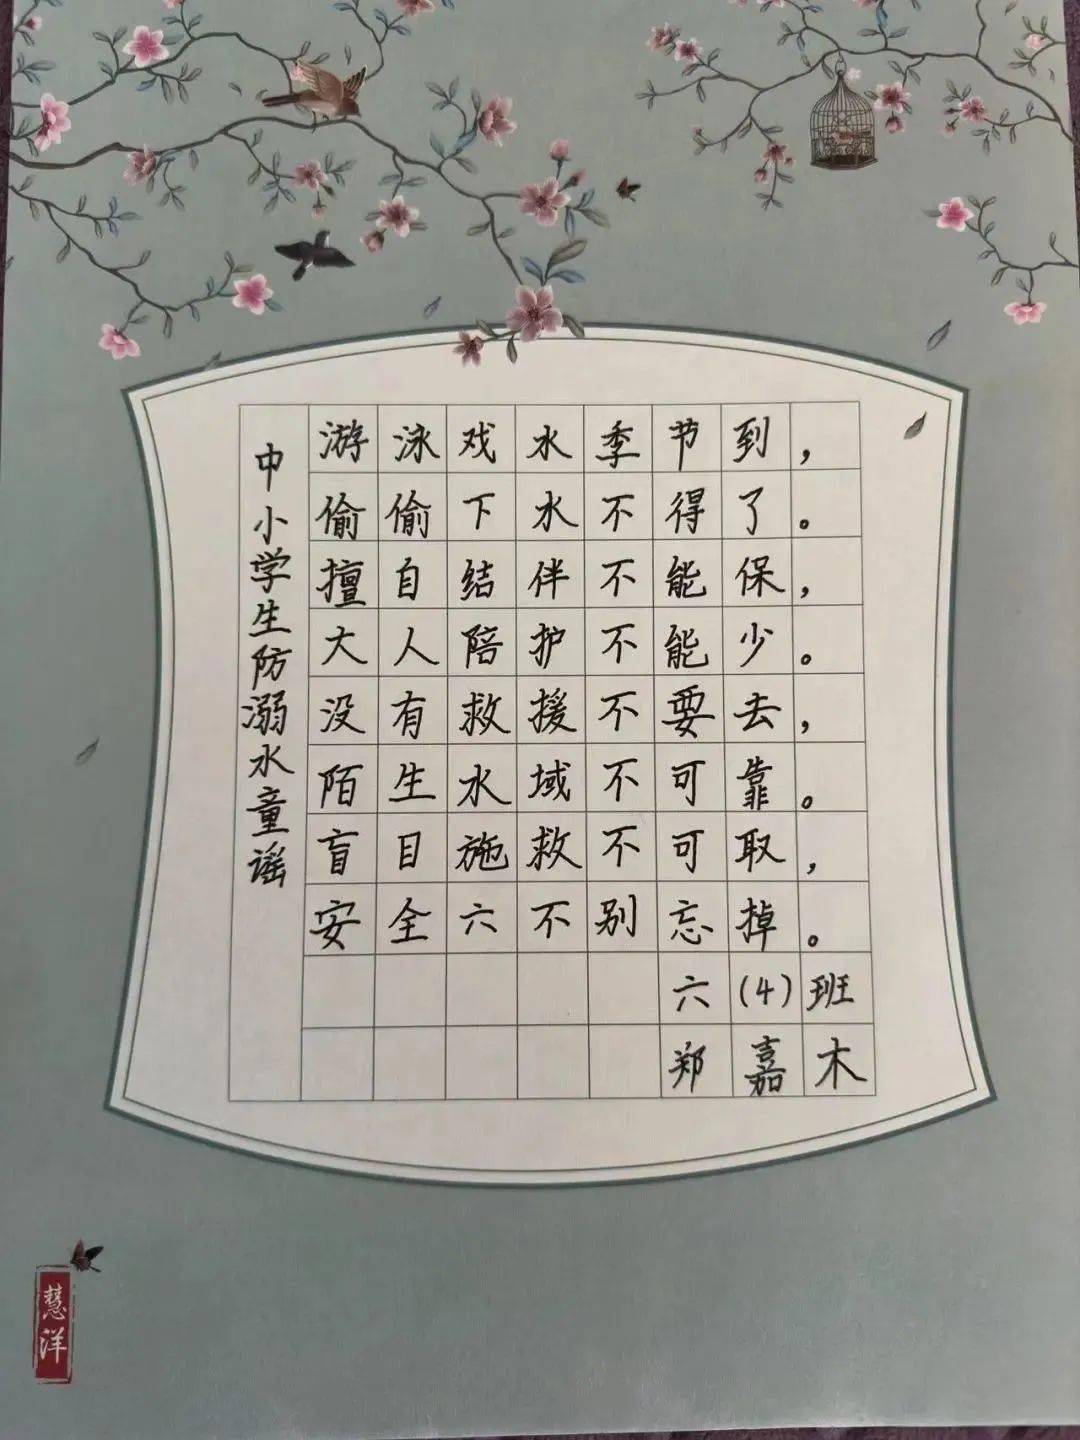 中小学生防溺水童谣
游泳戏水季节到，
偷偷下水不得了。
擅自结伴不能保，
大人陪护不能少。
没有救援不要去，
陌生水域不可靠。
盲目施救不可取，
安全六不别忘掉。
六(4)班
郑嘉木
慧洋